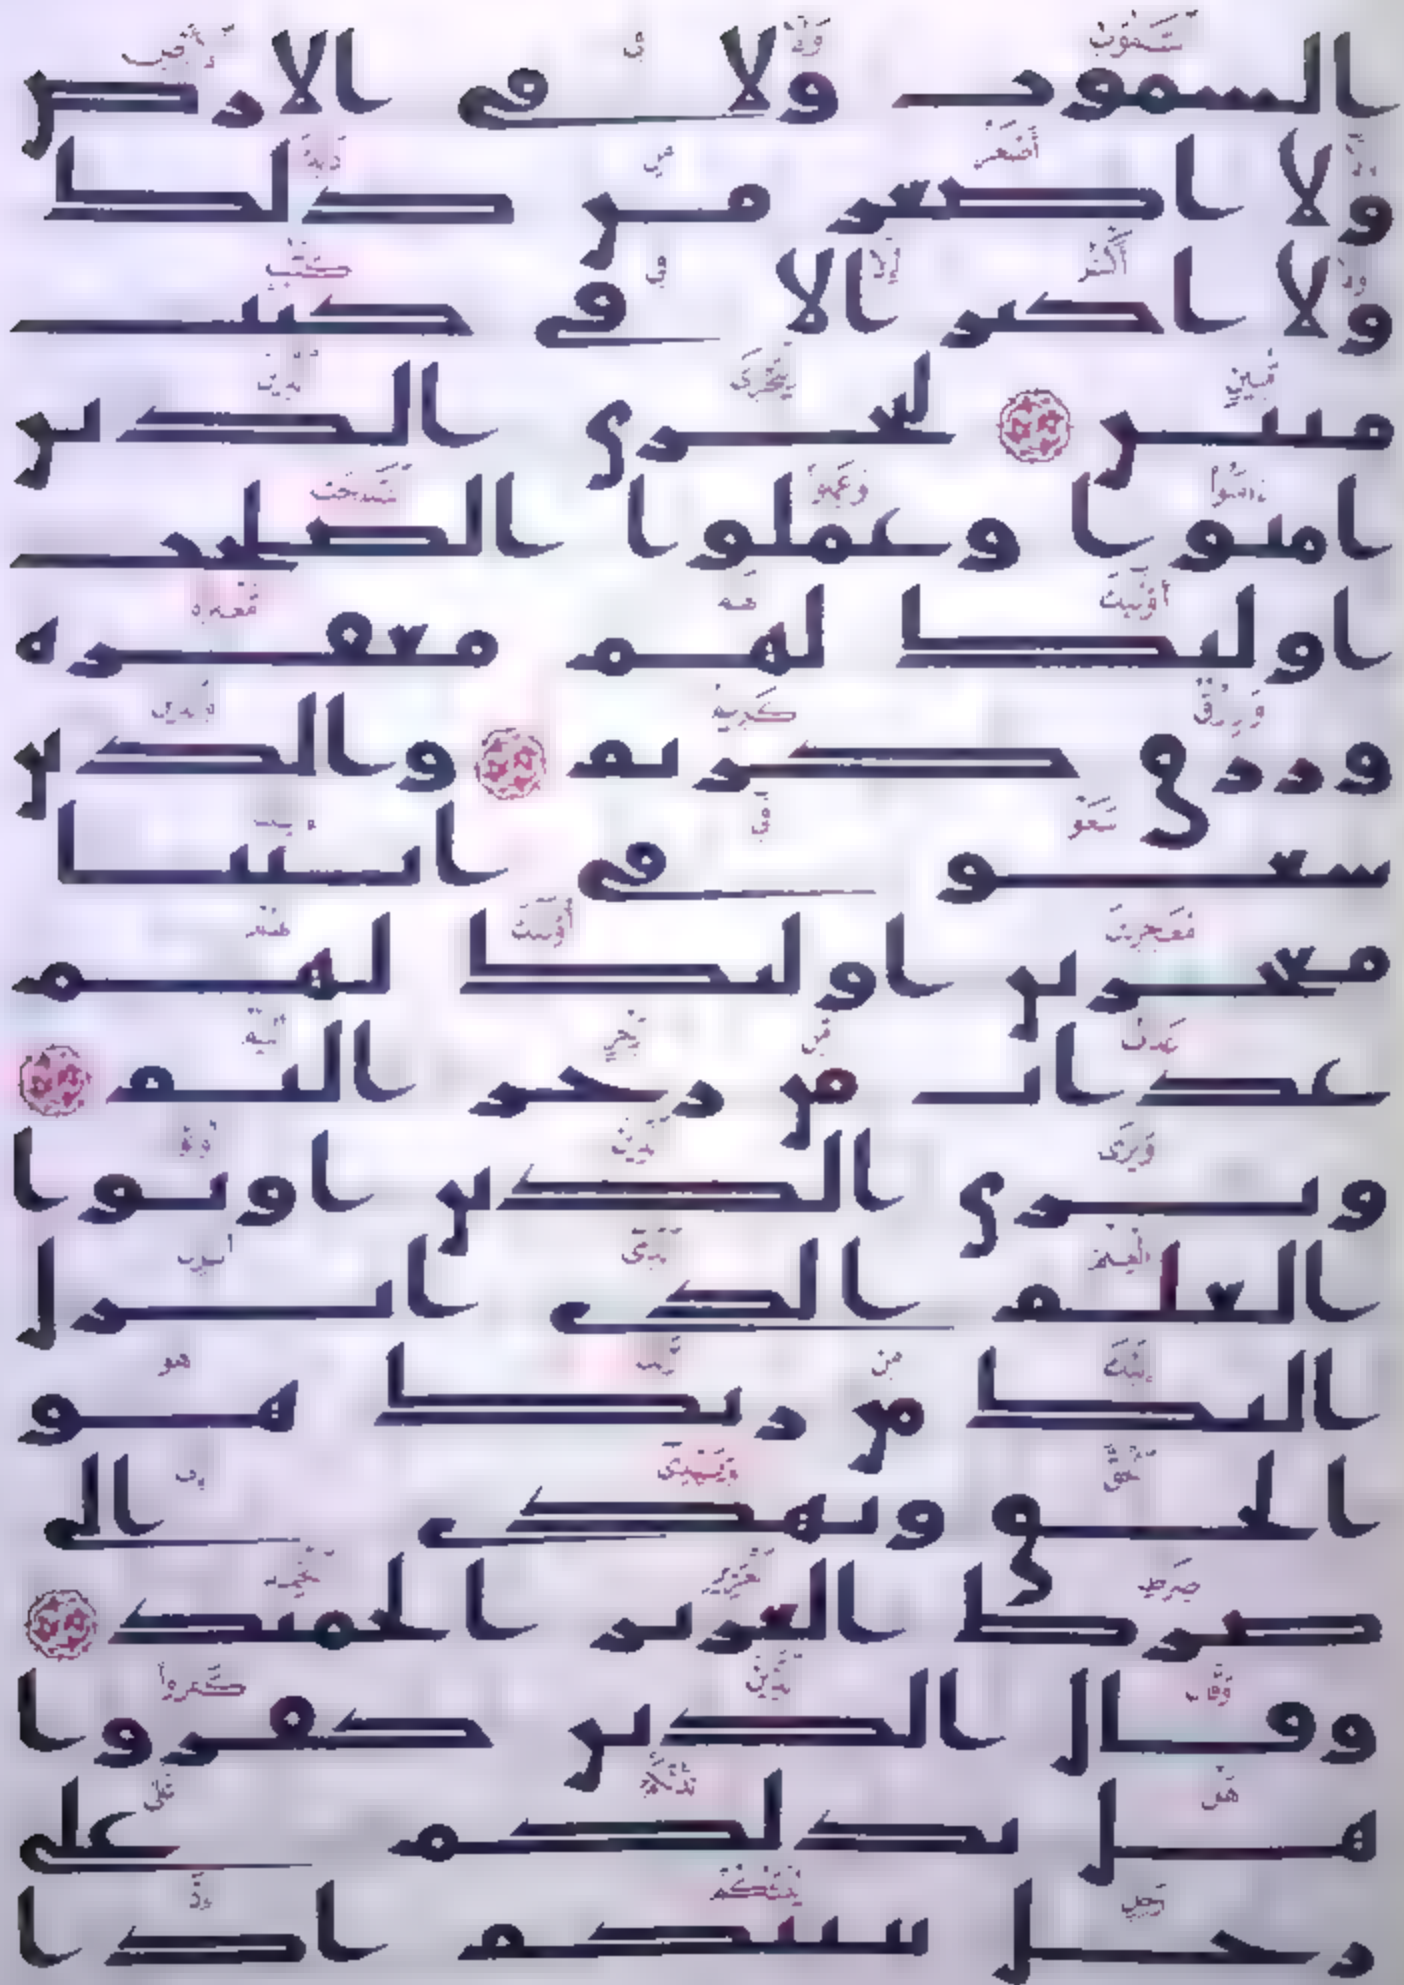 السموت ولا في الارض
ولا اصغر من ذلك
ولا اكبر الا في كتب
مبين ليجزي الذين
امنوا وعملوا الصلحت
اوليك لهم مغفرة
ورزق كريم والذين
سعو في ايتنا
معجزين اوليك لهم
عذاب من رجز اليم
ويرى الذين اوتوا
العلم الذي انزل
اليك من ربك هو
الحق ويهدي الى
صرط العزيز الحميد
وقال الذين كفروا
هل ندلكم على
رجل ينبيكم اذا